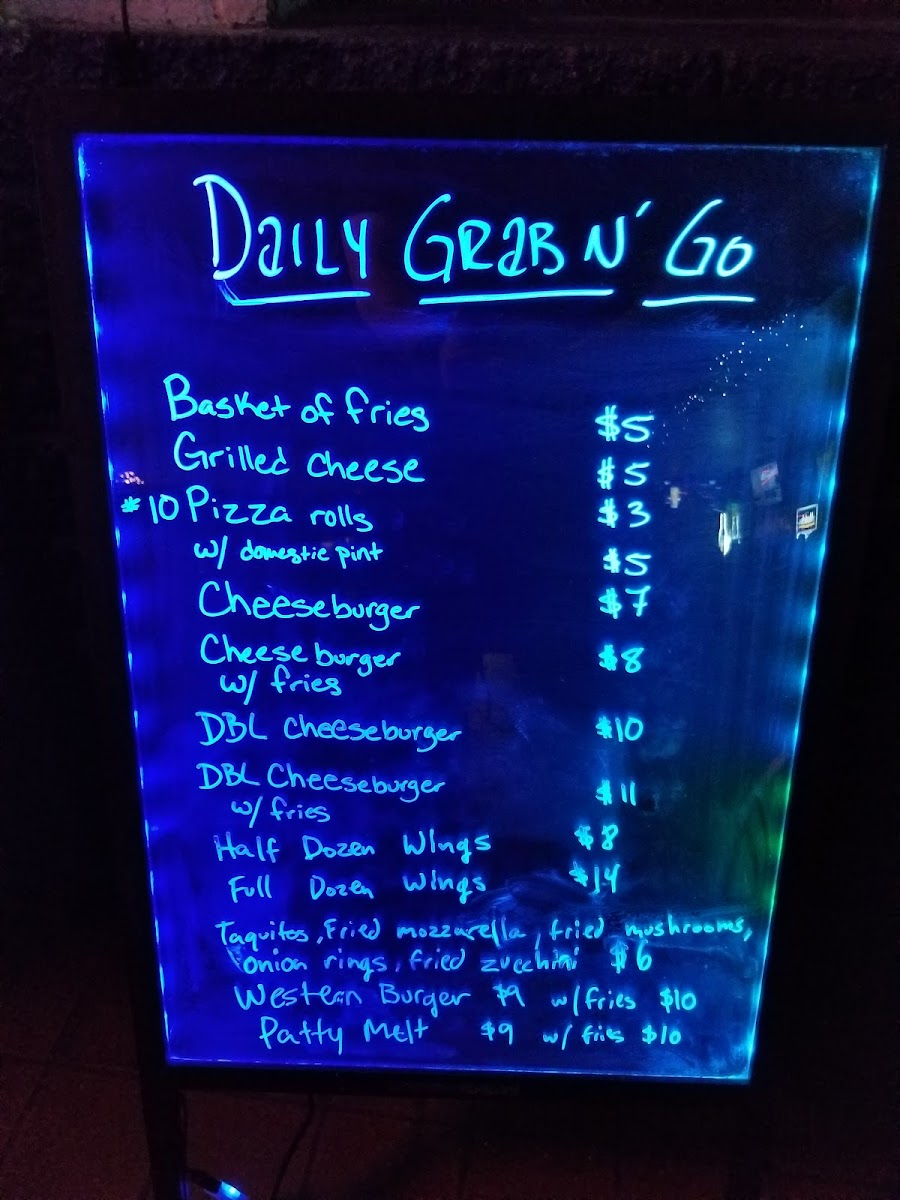 Daily Grab N' Go
Basket of fries $5
Grilled cheese $5
*10 Pizza rolls $3
w/ domestic pint $5
Cheeseburger $7
Cheeseburger $8
w/ fries
DBL Cheeseburger $10
DBL Cheeseburger $11
w/ fries
Half Dozen Wings $8
Full Dozen Wings $14
Taquitos, Fried mozzarella, fried mushrooms,
onion rings, fried zucchini $6
Western Burger $9 w/fries $10
Patty Melt $9 w/ fries $10